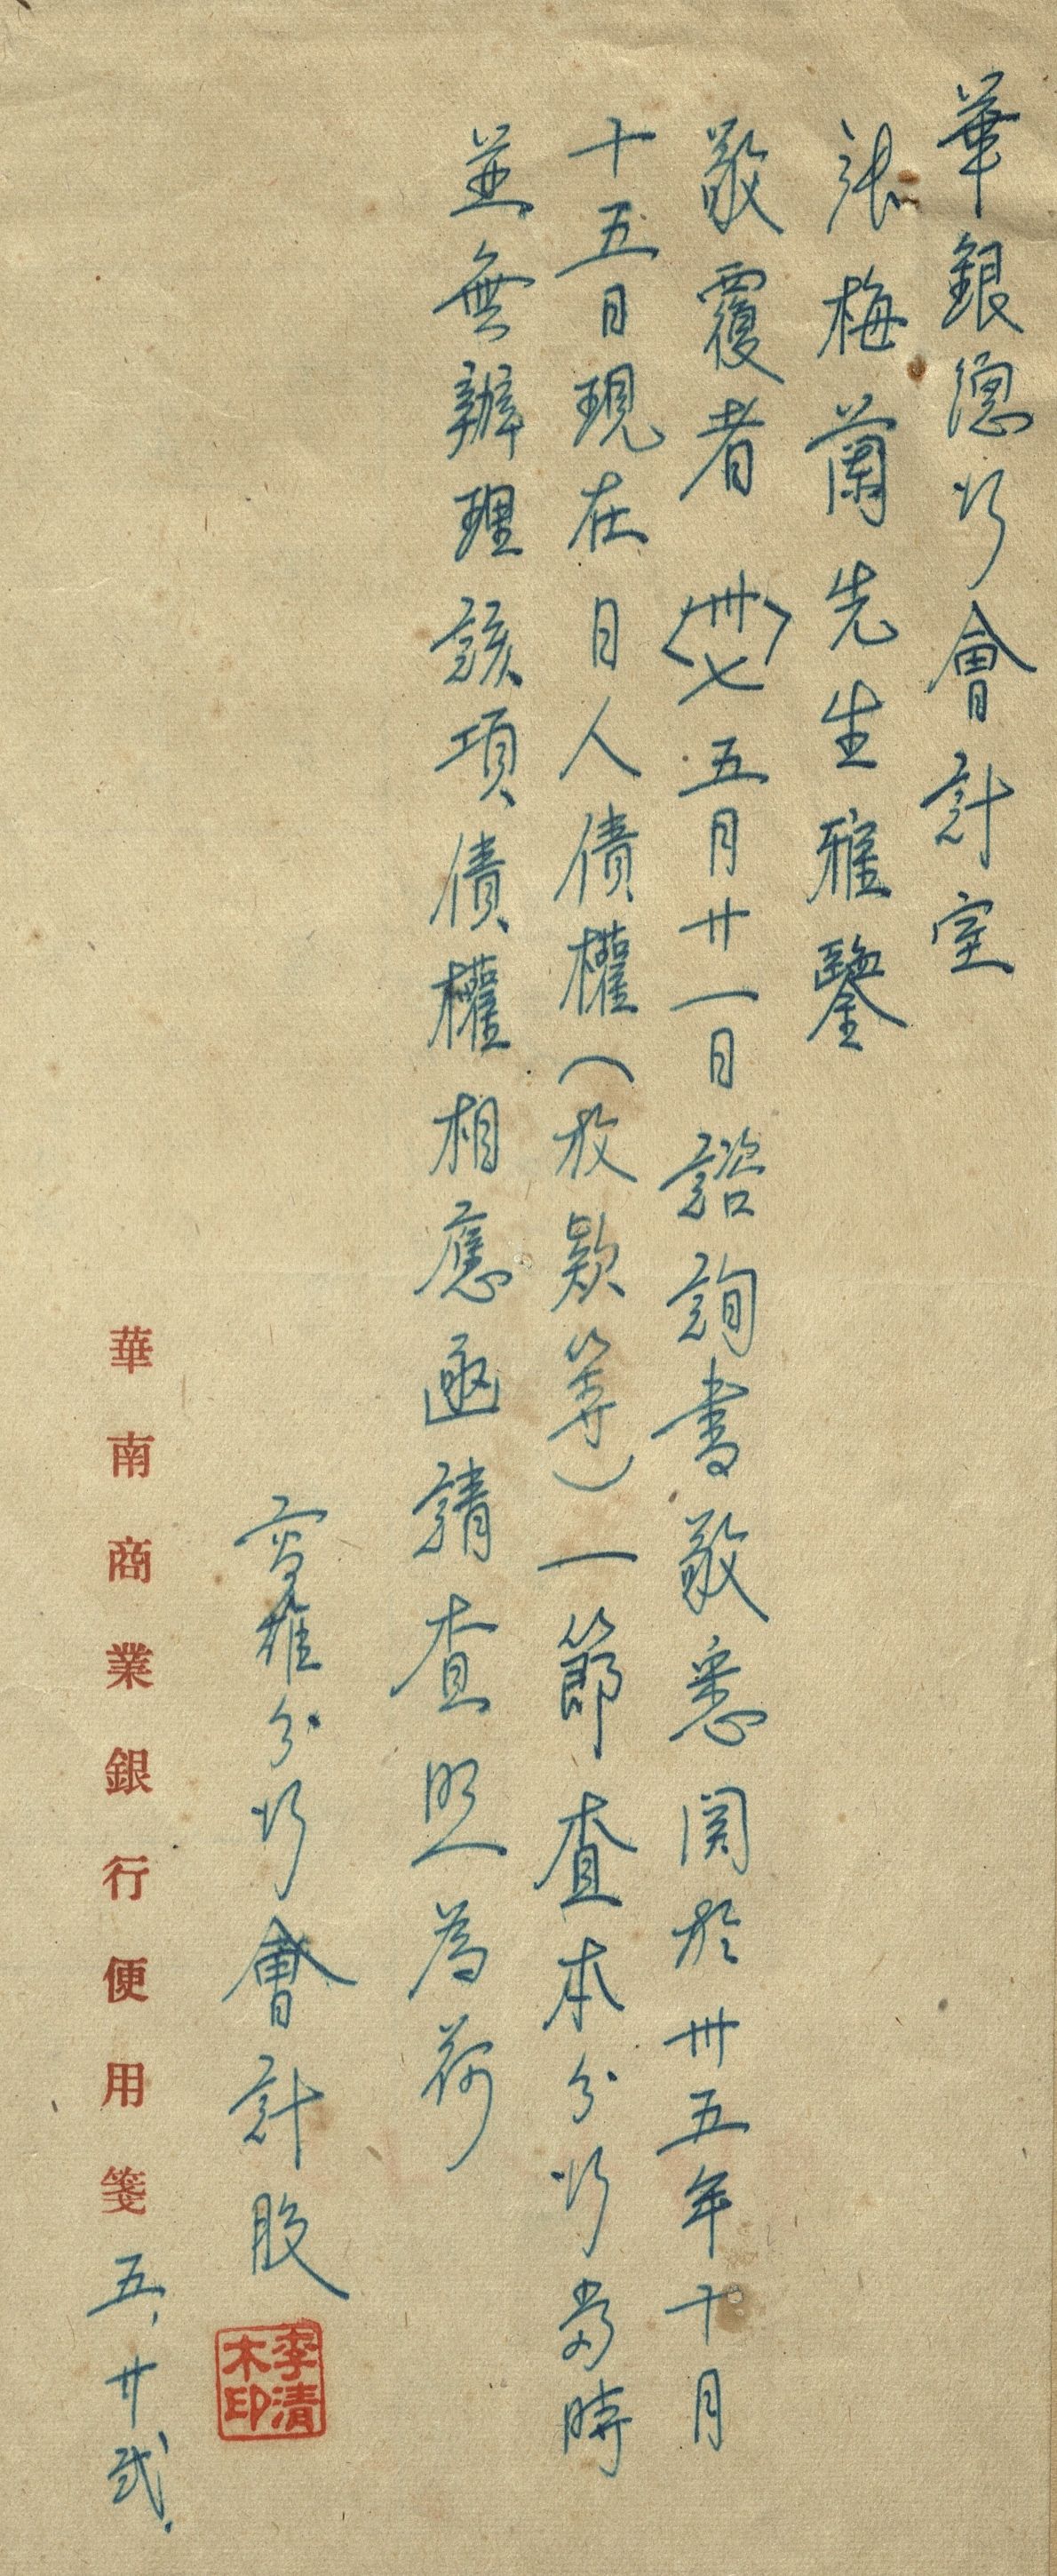 華銀總行會計室
張梅蘭先生雅鑒
敬覆者〈卅七〉五月廿一日諮詢書敬悉関於卅五年十月
十五日現在日人債權(放款等)一節查本分行當時
並無辦理該項債權相應函請查照為荷
高雄分行會計股
李清木印
華南商業銀行便用箋
五,廿弍.